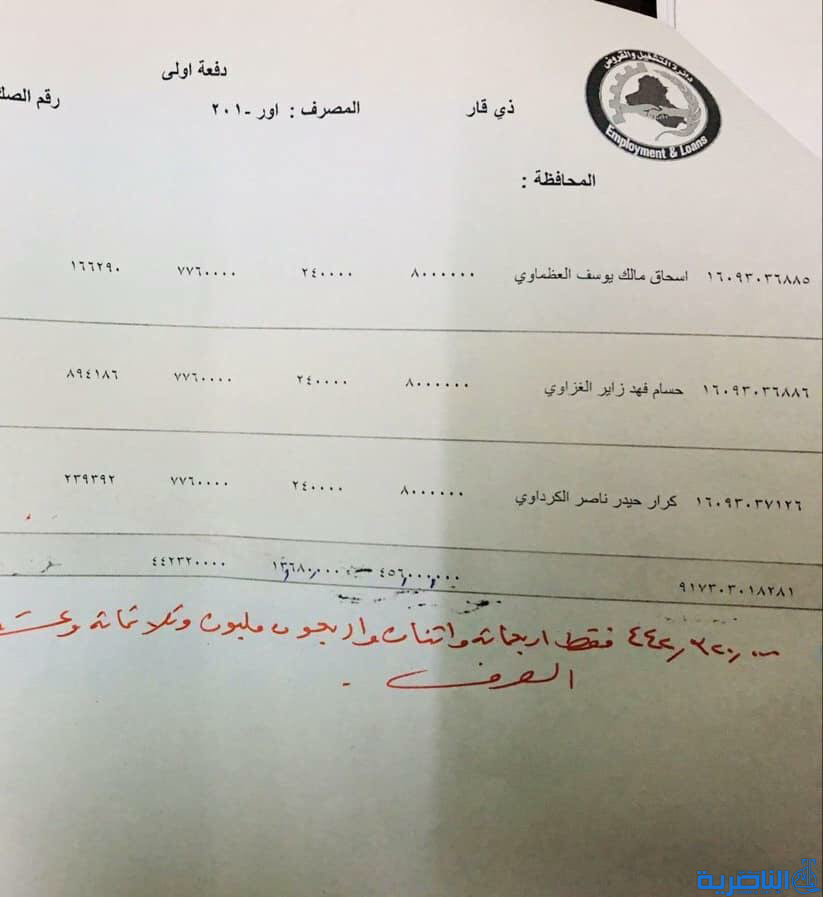 دائرة التشغيل والقروض
Employment & Loans
دفعة اولى
ذي قار المصرف : اور -٢٠١ رقم الصك
المحافظة :
١٦٠٩٣٠٣٦٨٨٥ اسحاق مالك يوسف العظماوي ٨٠٠٠٠٠٠ ٢٤٠٠٠٠ ٧٧٦٠٠٠٠ ١٦٦٢٩٠
١٦٠٩٣٠٣٦٨٨٦ حسام فهد زاير الغزاوي ٨٠٠٠٠٠٠ ٢٤٠٠٠٠ ٧٧٦٠٠٠٠ ٨٩٤١٨٦
١٦٠٩٣٠٣٧١٢٦ كرار حيدر ناصر الكرداوي ٨٠٠٠٠٠٠ ٢٤٠٠٠٠ ٧٧٦٠٠٠٠ ٢٣٩٣٩٢
٩١٧٣٠٣٠١٨٢٨١ ٤٥٦,٠٠٠,٠٠٠ ١٣,٦٨٠,٠٠٠ ٤٤٢٣٢٠٠٠٠
٤٤٢,٣٢٠,٠٠٠ فقط اربعمائة واثنان واربعون مليون وثلاثمائة
الناصرية